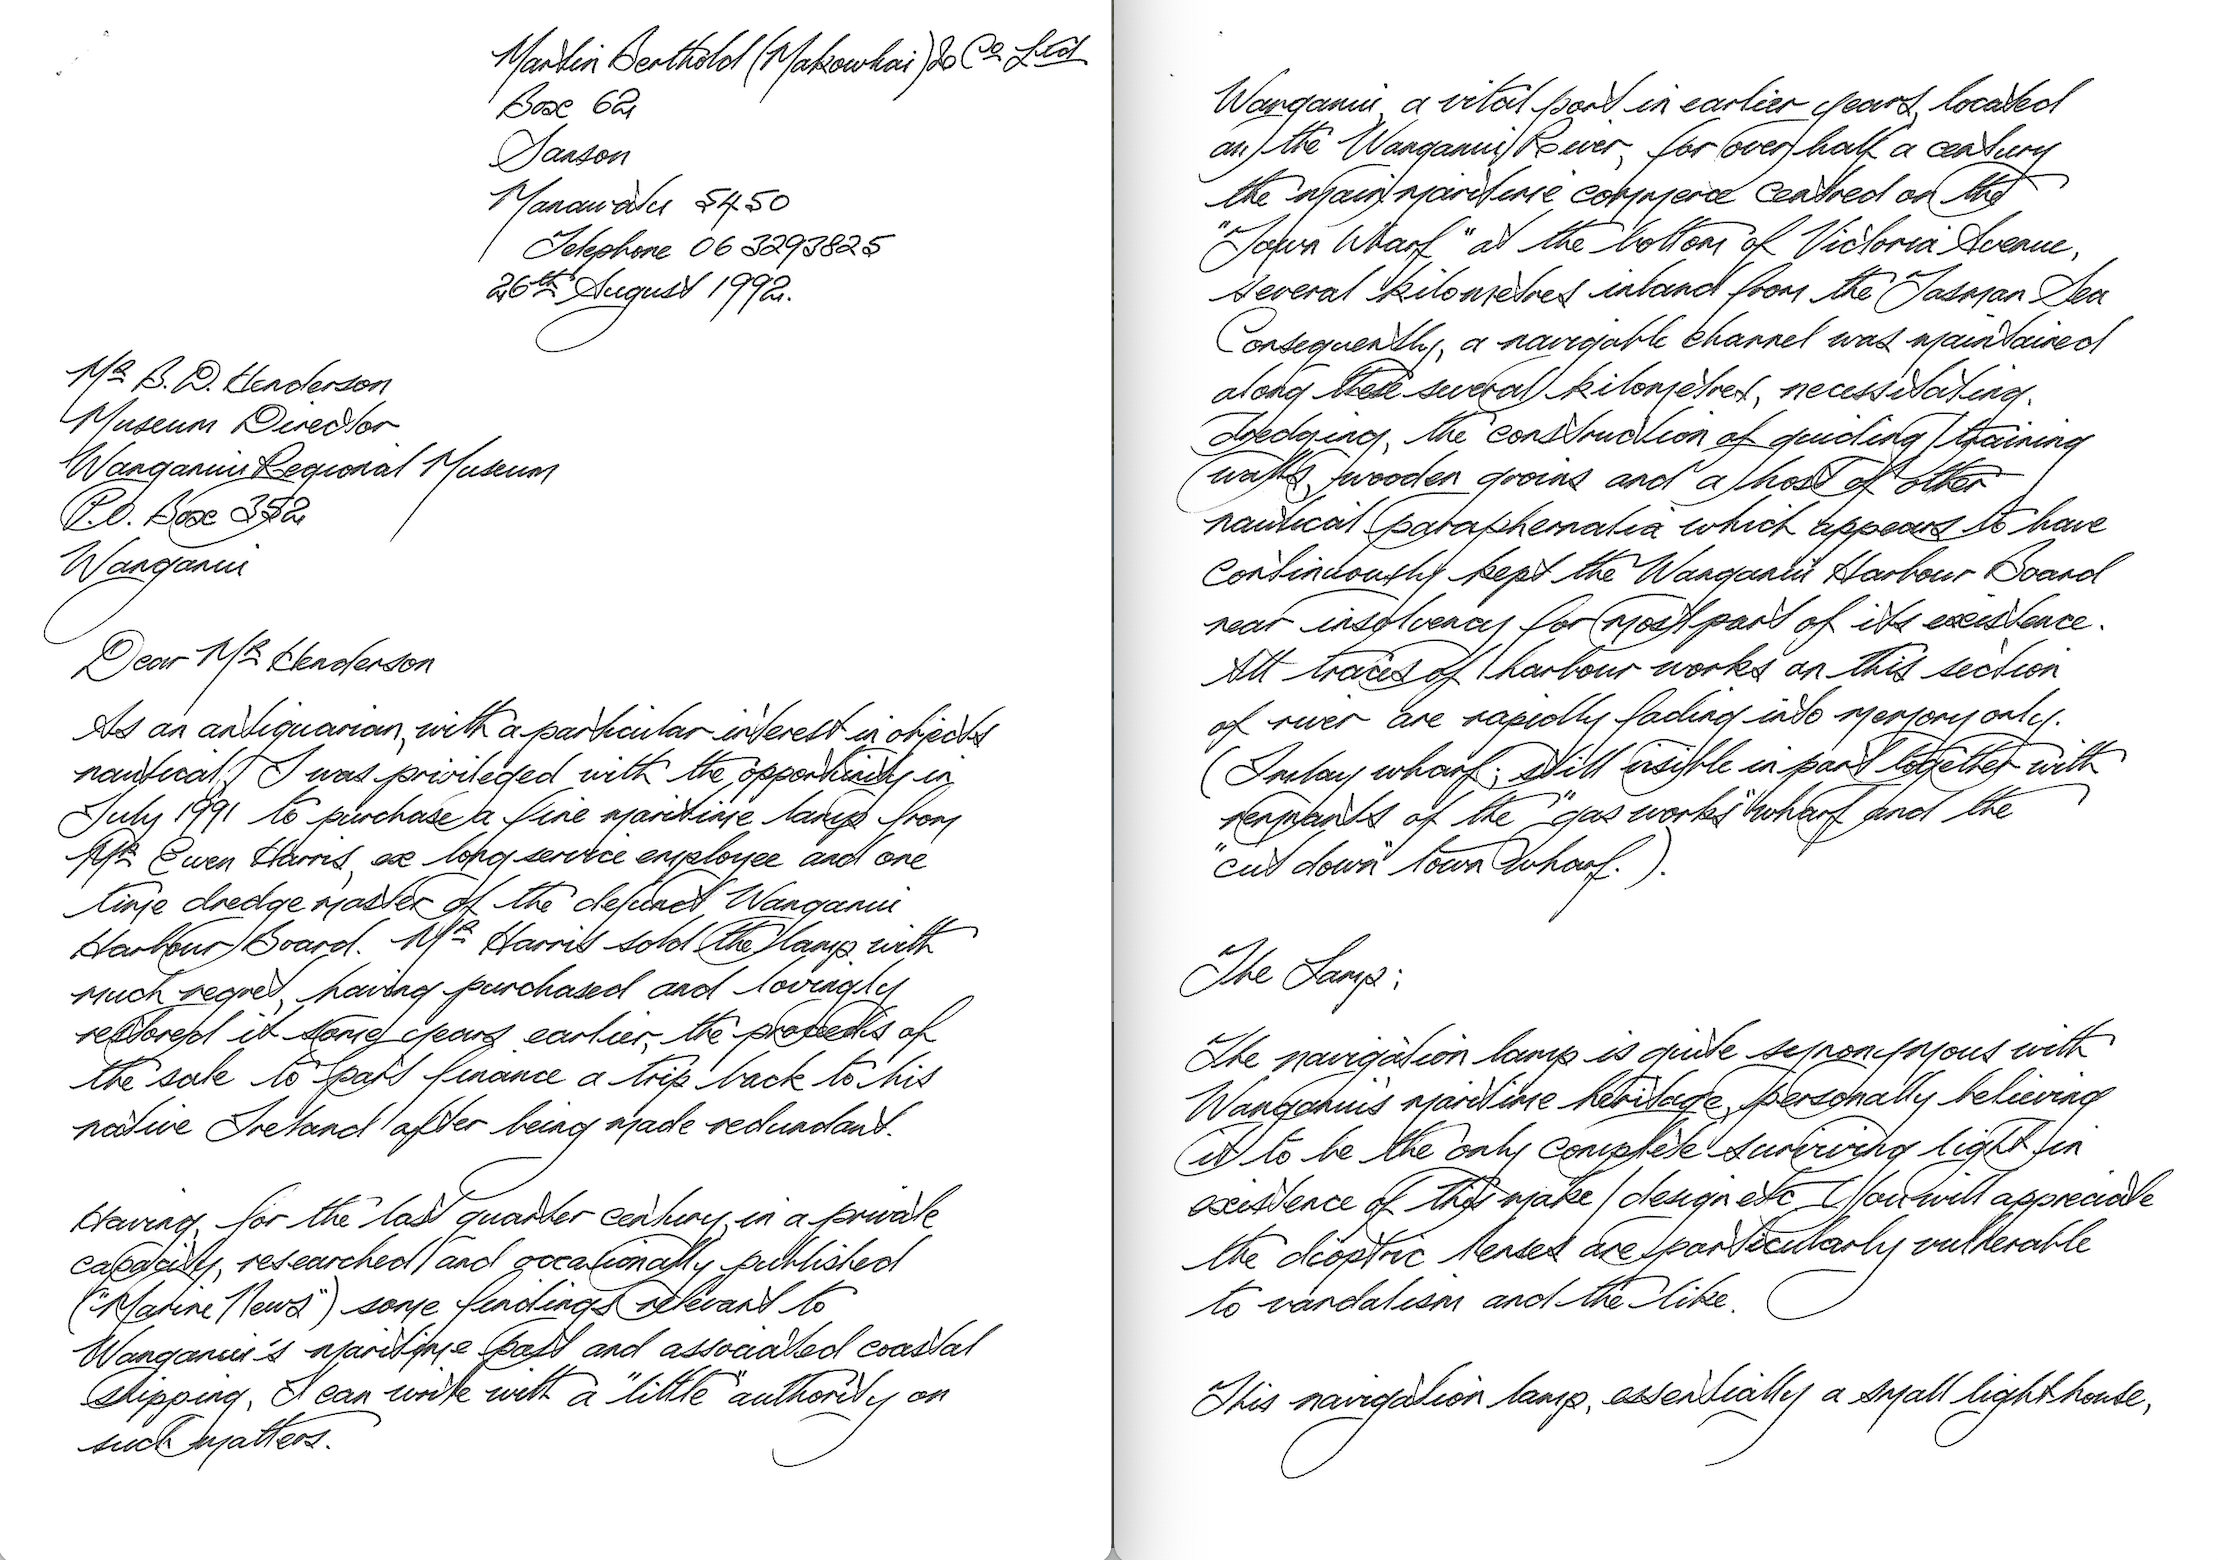 Martin Berthold (Makowhai) & Co Ltd
Box 62
Sanson
Manawatu 5450
Telephone 06 3293825
26th August 1992.
Mr B. D. Henderson
Museum Director
Wanganui Regional Museum
P.O. Box 352
Wanganui
Dear Mr Henderson
As an antiquarian, with a particular interest in objects
nautical, I was privileged with the opportunity in
July 1991 to purchase a fine maritime lamp from
Mr Ewen Harris, ex long service employee and one
time dredge master of the defunct Wanganui
Harbour Board. Mr Harris sold the lamp with
much regret, having purchased and lovingly
restored it some years earlier, the proceeds of
the sale to part finance a trip back to his
native Ireland after being made redundant.
Having, for the last quarter century, in a private
capacity, researched and occasionally published
("Marine News") some findings relevant to
Wanganui's maritime past and associated coastal
shipping, I can write with a "little" authority on
such matters.
Wanganui, a vital port in earlier years, located
on the Wanganui River, for over half a century
the main maritime commerce centred on the
"Town Wharf" at the bottom of Victoria Avenue,
several kilometres inland from the Tasman Sea
Consequently, a navigable channel was maintained
along these several kilometres, necessitating
dredging, the construction of guiding/training
walls, wooden groins and a host of other
nautical paraphernalia which appears to have
continuously kept the Wanganui Harbour Board
near insolvency for most part of its existence.
All traces of harbour works on this section
of river are rapidly fading into memory only.
(Imlay wharf; still visible in part together with
remnants of the "gas works" wharf and the
"cut down" town wharf.).
The Lamp;
The navigation lamp is quite synonymous with
Wanganui's maritime heritage, personally believing
it to be the only complete surviving light in
existence of this make/design etc. You will appreciate
the dioptric lenses are particularly vulnerable
to vandalism and the like.
This navigation lamp, essentially a small light house,